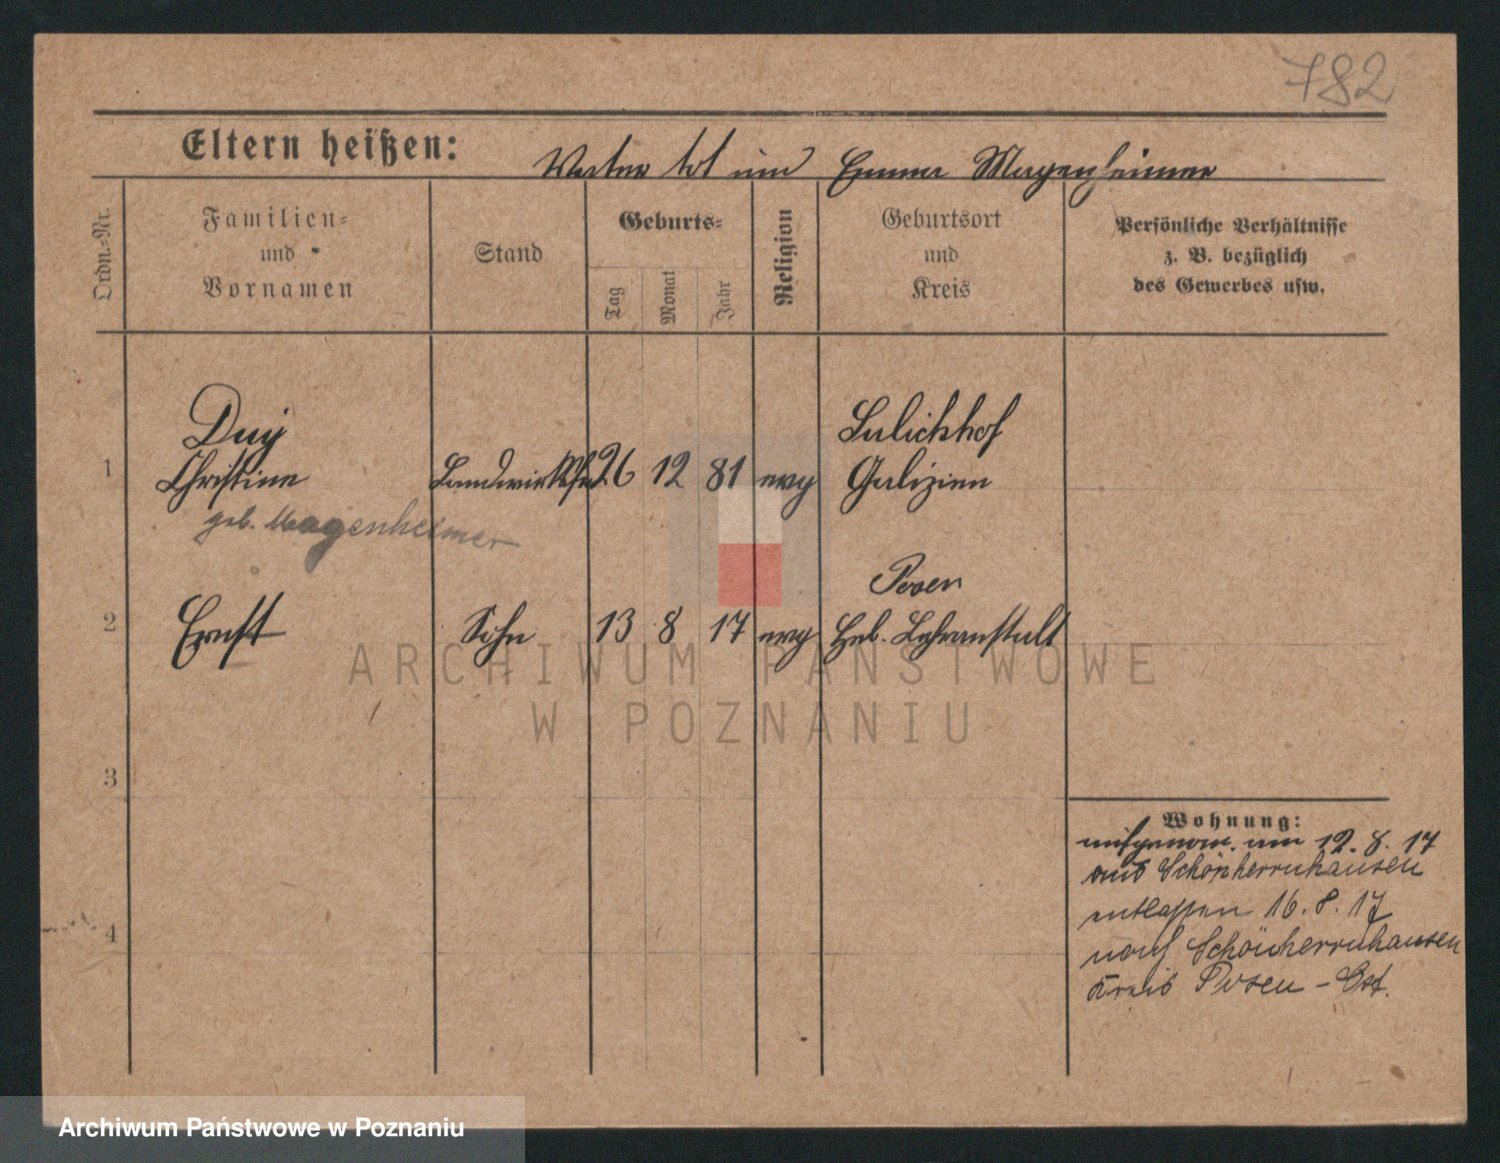 782
Eltern heißen: Vater tot und Emma Magenheimer
Ordn.-Nr.
Familien-
und
Vornamen
Stand
Geburts-
Tag
Monat
Jahr
Religion
Geburtsort
und
Kreis
Persönliche Verhältnisse
z. B. bezüglich
des Gewerbes usw.
Duy
Christine
geb. Magenheimer
1
26 12 81 evg
Galizien
Posen
2 Ernst Sohn 13 8 17 evg Heb. Lehranstalt
3
4
Wohnung:
aufgenom. am 12. 8. 17
aus Schönherrnhausen
entlassen 16. 8. 17
nach Schönherrnhausen
Kreis Posen - Ost.
ARCHIWUM PAŃSTWOWE
W POZNANIU
Archiwum Państwowe w Poznaniu